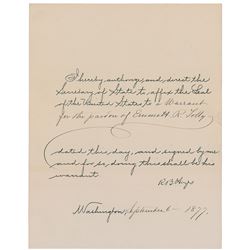 I hereby authorize and direct the
Secretary of State to affix the Seal
of the United States to a Warrant
for the pardon of Emmett R. Tolly
dated this day, and signed by me
and for so doing this shall be his
warrant.
R B Hayes
Washington, September 1877.